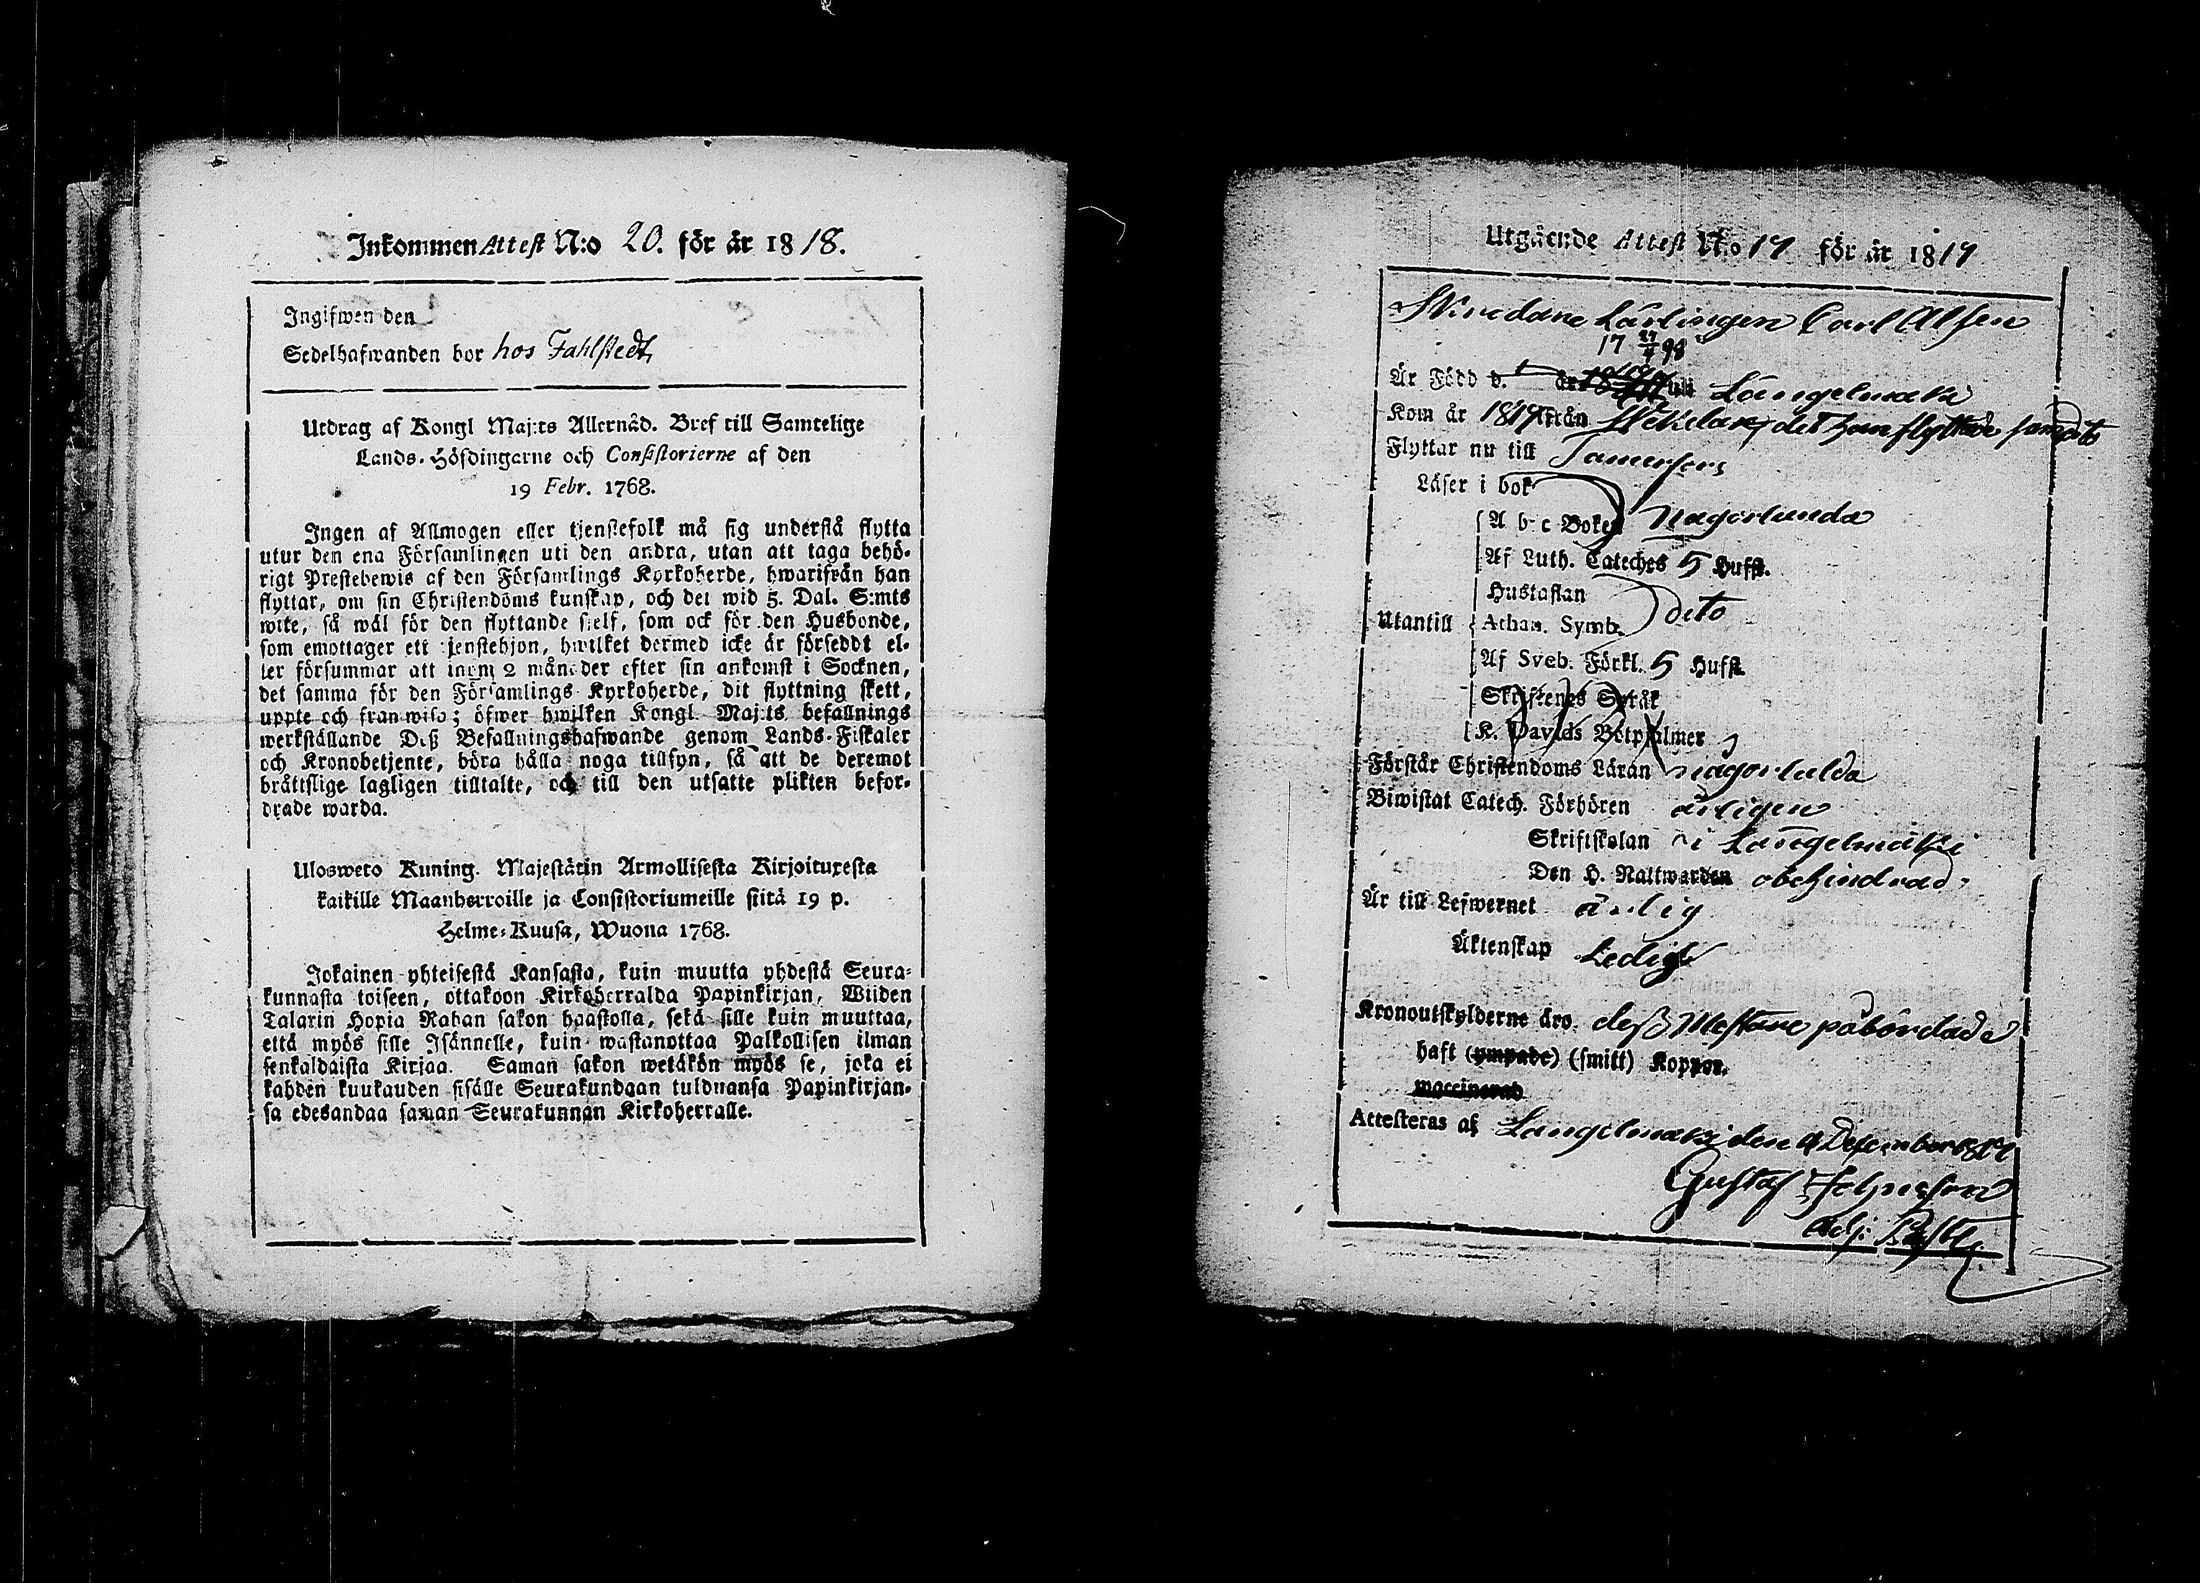 Inkommen Attest N:o 20. för år 1818.
Ingifwen den
Sedelhafwanden bor hos Fahlstedt
Utdrag af Kongl Maj:ts Allernåd. Bref till Samtelige
Lands-Höfdingarne och Consistorierne af den
19 Febr. 1768.
Ingen af Allmogen eller tjenstefolk må sig understå flytta
utur den ena Församlingen uti den andra, utan att taga behö-
rigt Prestebewis af den Församlings Kyrkoherde, hwarifrån han
flyttar, om sin Christendoms kunskap, och det wid 5. Dal. S:mts
wite, så wäl för den flyttande sjelf, som ock för den Husbonde,
som emottager ett tjenstehjon, hwilket dermed icke är försedt el-
ler försummar att inom 2 månader efter sin ankomst i Socknen,
det samma för den Församlings Kyrkoherde, dit flyttning skett,
uppte och framwisa; öfwer hwilken Kongl. Maj:ts befallnings
werkställande Deß Befallningshafwande genom Lands-Fiskaler
och Kronobetjente, böra hålla noga tillsyn, så att de deremot
bråttslige lagligen tilltalte, och till den utsatte plikten befor-
drade warda.
Ulosweto Kuning. Majestätin Armollisesta Kirjoituxesta
kaikille Maanherroille ja Consistoriumeille siitä 19 p.
Helme-Kuusa, Wuona 1768.
Jokainen yhteisestä Kansasta, kuin muutta yhdestä Seura-
kunnasta toiseen, ottakoon Kirkoherralda Papinkirjan, Wiiden
Talarin Hopia Rahan sakon haastolla, sekä sille kuin muuttaa,
että myös sille Isännelle, kuin wastanottaa Palkollisen ilman
senkaldaista Kirjaa. Saman sakon wetäkön myös se, joka ei
kahden kuukauden sisälle Seurakundaan tulduansa Papinkirjan-
sa edesandaa saman Seurakunnan Kirkoherralle.
Utgående Attest N:o 19 för år 1819
Skreddare Lärlingen Carl Alsen
17 27/4 98
Är Född d. år Längelmäki
Kom år 1819 från det han flyttade samma
Flyttar nu till Tamerfors
Läser i bok
A b c Boken någorlunda
Af Luth. Cateches 5 Hufst.
Hustaflan
Utantill Athan. Symb. dito
Af Sveb. Förkl. 5 Hufst.
Skriftenes Språk
K. Davids Botpsalmer
Förstår Christendoms Läran någorlunda
Biwistat Catech. Förhören årligen
Skriftskolan i Längelmäki
Den H. Nattwarden obehindrad
Är till Lefwernet ärlig
Äktenskap Ledig
Kronoutskylderne äro deß Mästare påbördade
haft (ympade) (smitt) Koppor.
waccinerad
Attesteras af Längelmäki den 9 December 1819
Gustaf
Adj: